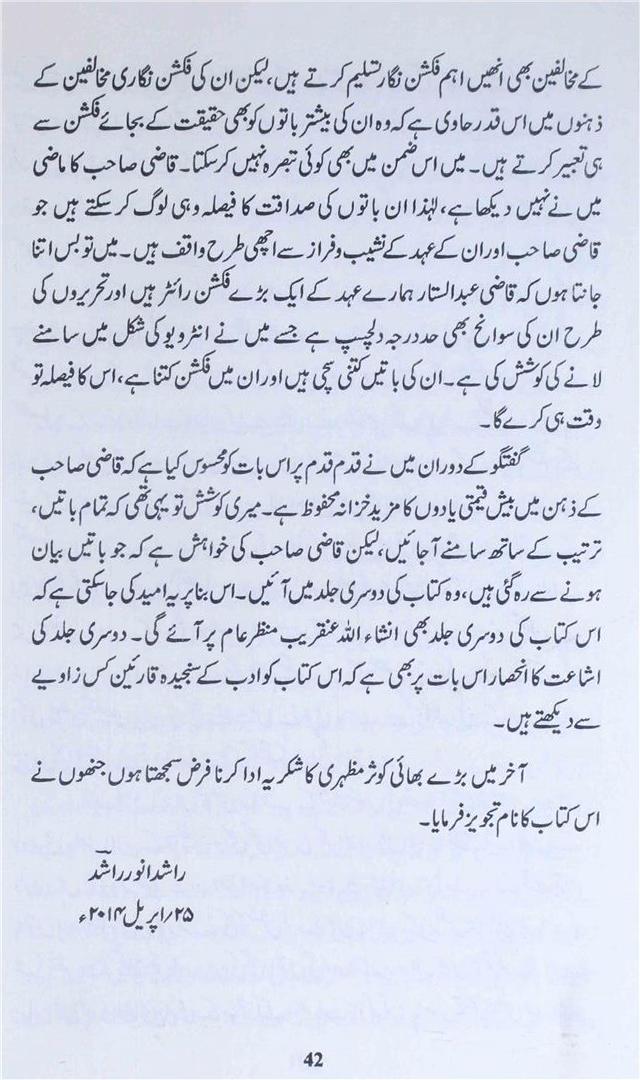 کے مخالفین بھی انھیں اہم فکشن نگار تسلیم کرتے ہیں، لیکن ان کی فکشن نگاری مخالفین کے
ذہنوں میں اس قدر حاوی ہے کہ وہ ان کی بیشتر باتوں کو بھی حقیقت کے بجائے فکشن سے
ہی تعبیر کرتے ہیں۔ میں اس ضمن میں بھی کوئی تبصرہ نہیں کرسکتا۔ قاضی صاحب کا ماضی
میں نے نہیں دیکھا ہے، لہٰذا ان باتوں کی صداقت کا فیصلہ وہی لوگ کرسکتے ہیں جو
قاضی صاحب اور ان کے عہد کے نشیب و فراز سے اچھی طرح واقف ہیں۔ میں تو بس اتنا
جانتا ہوں کہ قاضی عبدالستار ہمارے عہد کے ایک بڑے فکشن رائٹر ہیں اور تحریروں کی
طرح ان کی سوانح بھی حد درجہ دلچسپ ہے جسے میں نے انٹرویو کی شکل میں سامنے
لانے کی کوشش کی ہے۔ ان کی باتیں کتنی سچی ہیں اور ان میں فکشن کتنا ہے، اس کا فیصلہ تو
وقت ہی کرے گا۔
گفتگو کے دوران میں نے قدم قدم پر اس بات کو محسوس کیا ہے کہ قاضی صاحب
کے ذہن میں بیش قیمتی یادوں کا مزید خزانہ محفوظ ہے۔ میری کوشش تو یہی تھی کہ تمام باتیں،
ترتیب کے ساتھ سامنے آجائیں، لیکن قاضی صاحب کی خواہش ہے کہ جو باتیں بیان
ہونے سے رہ گئی ہیں، وہ کتاب کی دوسری جلد میں آئیں۔ اس بنا پر یہ امید کی جاسکتی ہے کہ
اس کتاب کی دوسری جلد بھی انشاء اللہ عنقریب منظر عام پر آئے گی۔ دوسری جلد کی
اشاعت کا انحصار اس بات پر بھی ہے کہ اس کتاب کو ادب کے سنجیدہ قارئین کس زاویے
سے دیکھتے ہیں۔
آخر میں بڑے بھائی کوثر مظہری کا شکریہ ادا کرنا فرض سمجھتا ہوں جنھوں نے
اس کتاب کا نام تجویز فرمایا۔
راشد انور راشد
۲۵؍ اپریل ۲۰۱۴ء
42